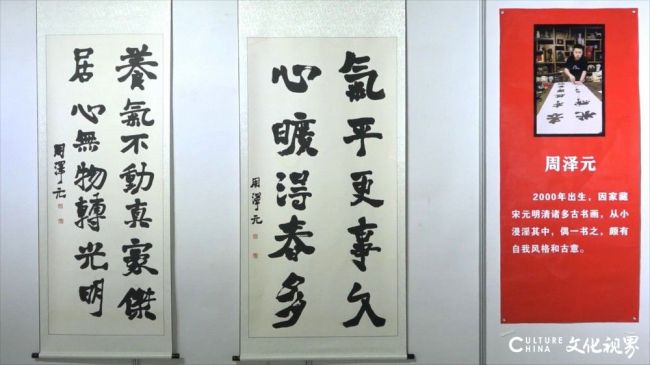 養氣不動真豪傑
居心無物轉光明
周澤元
氣平更事久
心曠得春多
周澤元
周泽元
2000年出生，因家藏
宋元明清诸多古书画，从小
浸淫其中，偶一书之，颇有
自我风格和古意。
CULTURE
CHINA
文化视界